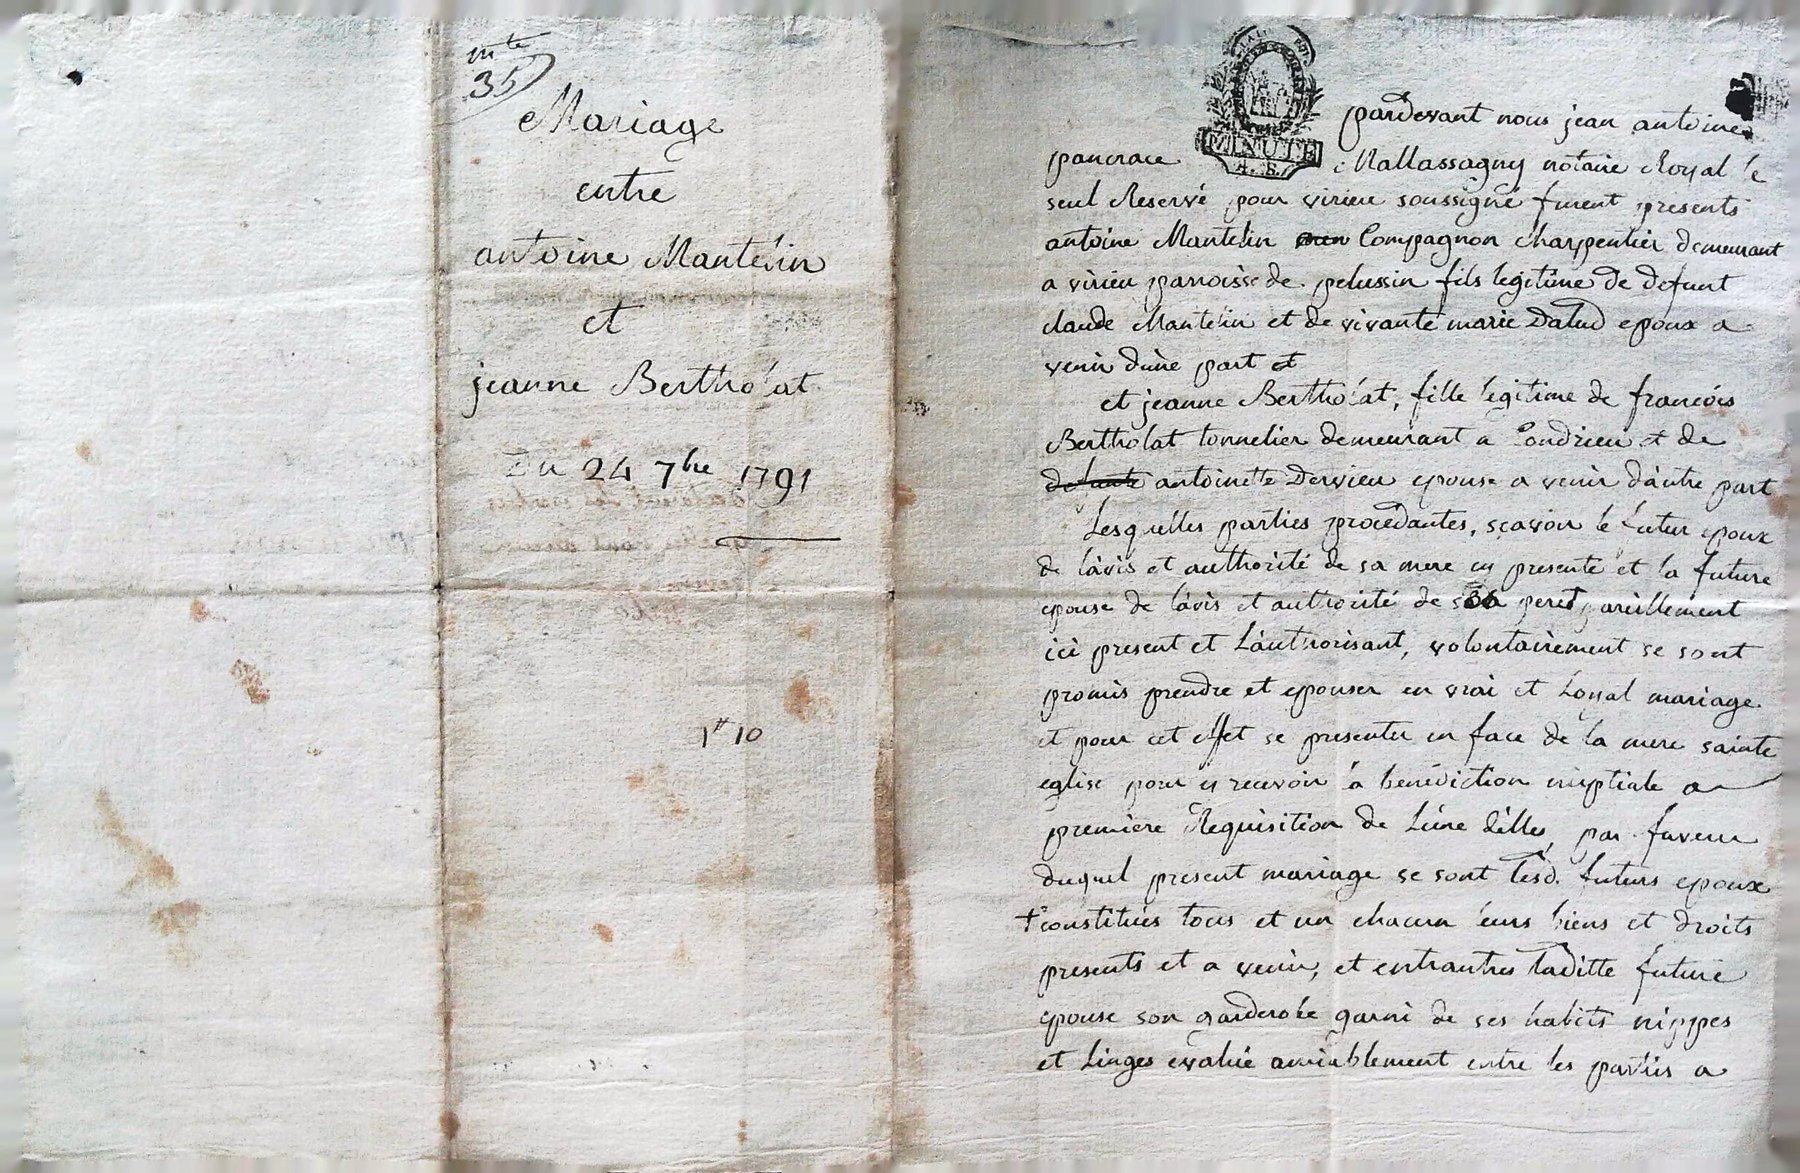 mte
35
Mariage
entre
antoine Mantelin
et
jeanne Bertholat
Du 24 7bre 1791
1# 10
MINUTE
pardevant nous jean antoine
pancrace Mallassagny notaire Royal le
seul Reservé pour virieu soussigné furent presents
antoine Mantelin Compagnon charpentier demeurant
a virieu parroisse de pelussin fils legitime de defunt
claude Mantelin et de vivante marie Dalud epoux a
venir d'une part et
et jeanne Bertholat, fille legitime de francois
Bertholat tonnelier demeurant a Condrieu et de
defunte antoinette Dervieu epouse a venir d'autre part
Lesquelles parties procedantes, sçavoir le futur epoux
de l'avis et authorité de sa mere cy presente et la future
epouse de l'avis et authorité de son pere pareillement
ici present et L'authorisant, volontairement se sont
promis prendre et epouser en vrai et Loyal mariage
et pour cet effet se presenter en face de la mere sainte
eglise pour y recevoir la benediction nuptiale a
premiere Requisition de L'une d'elles, par faveur
duquel present mariage se sont lesd. futurs epoux
+ constitués tous et un chacun leurs biens et droits
presents et a venir, et entrautres laditte future
epouse son garderobe garni de ses habits nippes
et Linges evalué amiablement entre les parties a